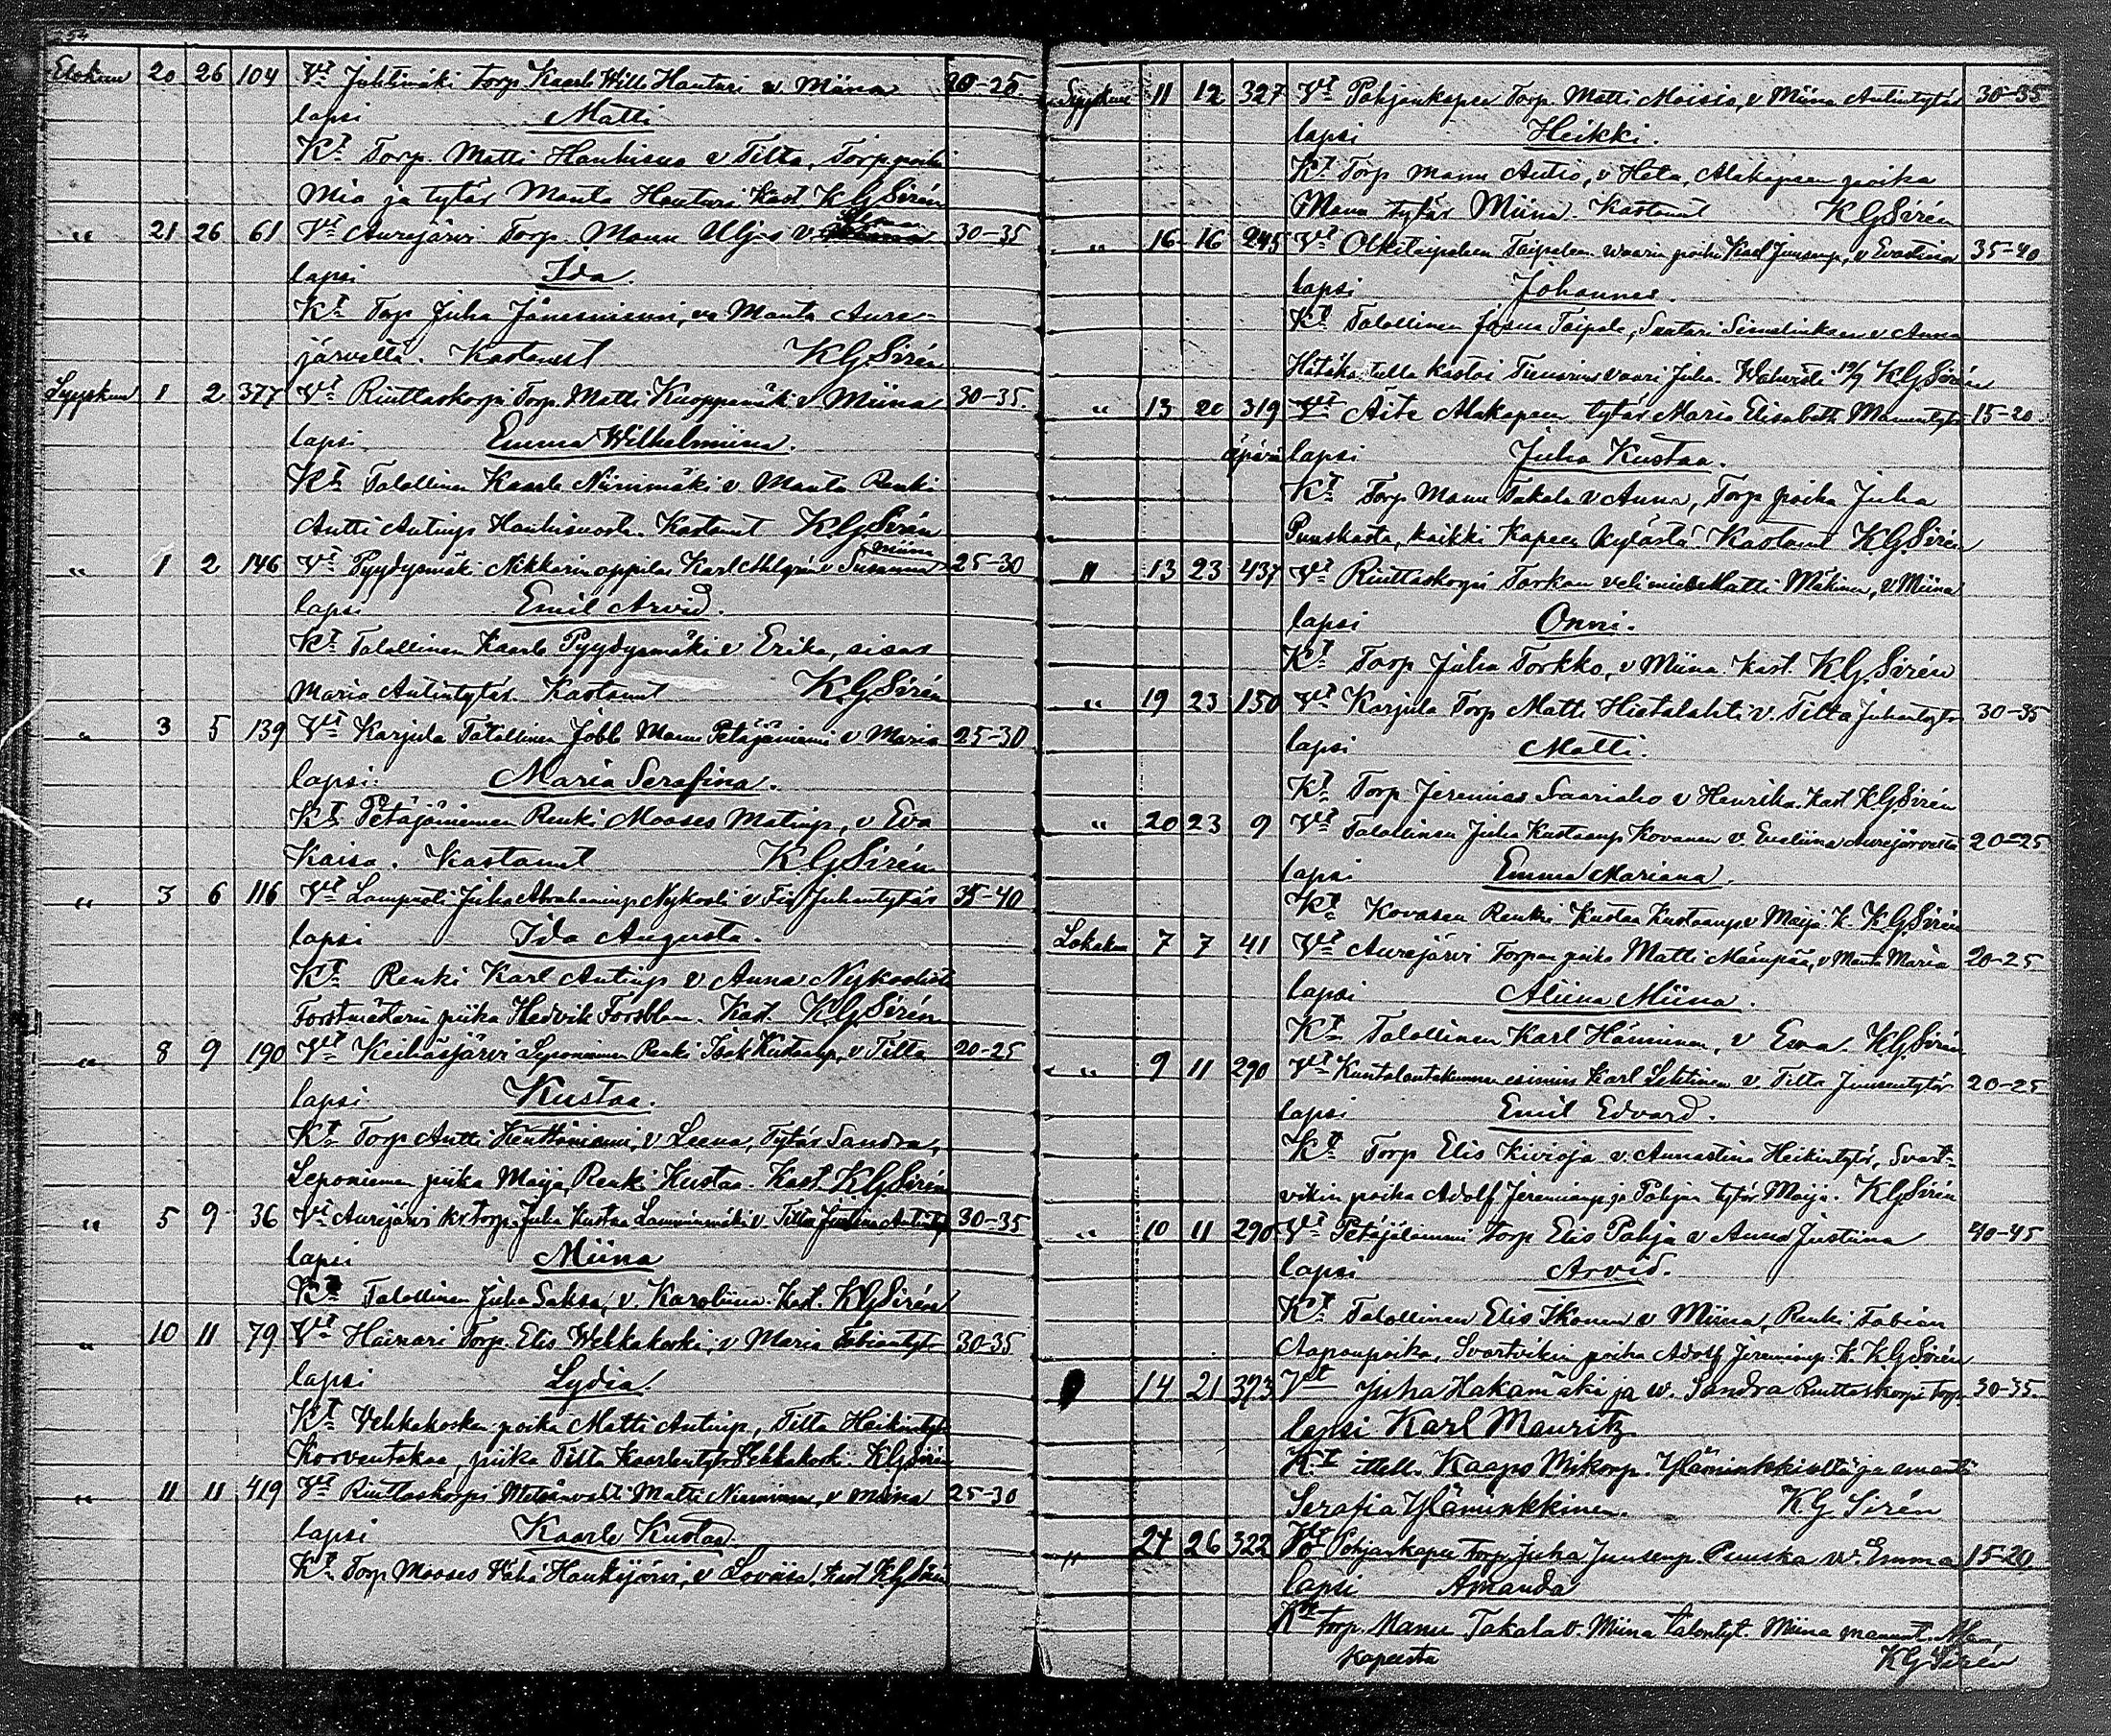 254
Elokuu 20 26 104 Vt Johtimäki Torp. Kaarle Wille Hauturi v. Miina 20-25
lapsi Matti
Kt Torp. Matti Hauhisuo v Tilta, Torp. poika
Mio ja tytär Manta Hauturi Kast. KG Sirén
" 21 26 61 Vt Aurejärvi Torp. Manu Uljas v. 30-35
lapsi Ida.
Kt Torp Juha Jänesniemi, va Manta Aure-
järveltä. Kastanut KG Sirén
Syyskuu 1 2 377 Vt Riuttaskorpi Torp. Matti Kuoppamäki v Miina 30-35
lapsi Emma Wilhelmiina.
Kt Talollinen Kaarle Niinimäki v Manta Renki
Antti Antinp Hauhisuosta. Kastanut KG Sirén
" 1 2 146 Vt Pyydysmäki Nikkarinoppilas Karl Ahlgren v Susanna Miina 25-30
lapsi Emil Arvid.
Kt Talollinen Kaarle Pyydysmäki v Erika, sisar
Maria Antintytär. Kastanut KG Sirén
" 3 5 139 Vt Karjula Talollinen Jobb Manu Petäjäniemi v Maria 25-30
lapsi Maria Serafina.
Kt Petäjäniemen Renki Mooses Matinp, v Eva
Kaisa. Kastanut KG Sirén
" 3 6 116 Vt Lampuoti Juha Abrahaminp Nykoski v Fia Juhantytär 35-40
lapsi Ida Augusta.
Kt Renki Karl Antinp v Anna Nykoskelta
Forstmästarin piika Hedvik Forsblom. Kast KG Sirén
" 8 9 190 Vt Keihäsjärvi Leponiemen Renki Isak Kustaanp, v Tilta 20-25
lapsi Kustaa.
Kt Torp Antti Kenttäniemi, v Leena, Tytär Sandra,
Leponiemen piika Maija, Renki Kustaa. Kast KG Sirén
" 5 9 36 Vt Aurejärvi Torp. Juha Kustaa Lamminmäki v Tilta Justiina Antintyt 30-35
lapsi Miina
Kt Talollinen Juha Saksa, v. Karoliina. Kast. KG Sirén
" 10 11 79 Vt Hainari Torp. Elis Wehkakoski, v Maria Fabiantyt 30-35
lapsi Lydia.
Kt Vehkakosken poika Matti Antinp, Tilta Heikintyt
Korventakaa, piika Tilta Kaarlentytär Vehkakoski. KG Sirén
" 11 11 419 Vt Riuttaskorpi Metsänvahti Matti Nieminen, v Miina 25-30
lapsi Kaarle Kustaa.
Kt Torp Mooses Vähä Haukijärvi, v Loviisa, Kast KG Sirén
Syyskuu 11 12 327 Vt Pohjankapee Torp. Matti Moisio, v Miina Antintytär 30-35
lapsi Heikki.
Kt Torp Manu Autio, v Heta, Alakapeen poika
Manu tytär Miina. Kastanut KG Sirén
" 16 16 245 Vt Olkitaipaleen Taipaleen vaarin poika Karl Juusenp, v Evastiina 35-40
lapsi Johannes.
Kt Talollinen Josua Taipale, v Anna
Hätäkasteella kastoi vaari Juha. Wahvisti 19/9 KG Sirén
" 13 20 319 Vt Äite Alakapeen tytär Maria Elisabeth Manuntytär 15-20
äpärä lapsi Juha Kustaa.
Kt Torp Manu Takala v Anna, Torp poika Juha
Puuskasta, kaikki Kapeen kylästä. Kastanut KG Sirén
" 13 23 437 Vt Riuttaskorpi Torkon velimies Matti Mäkinen, v Miina
lapsi Onni.
Kt Torp Juha Torkko, v Miina. Kast. KG Sirén
" 19 23 150 Vt Karjula Torp Matti Hietalahti v. Tilta Juhantytär 30-35
lapsi Matti.
Kt Torp Jeremias Saariaho v Henrika. Kast KG Sirén
" 20 23 9 Vt Talollinen Juha Kustaanp Kovanen v. Eveliina Aurejärveltä 20-25
lapsi Emma Mariana.
Kt Kovasen Renki Kustaa Kustaanp v Maija. K. KG Sirén
Lokakuu 7 7 41 Vt Aurejärvi Torpan poika Matti Mäenpää, v Manta Maria 20-25
lapsi Aliina Miina.
Kt Talollinen Karl Hänninen, v Eeva. KG Sirén
" 9 11 290 Vt Kuntalautakunnan esimies Karl Lehtinen v. Tilta Juusentytär 20-25
lapsi Emil Edvard.
Kt Torp Elis Kivioja v. Annastina Heikintytär, Svart-
vikin poika Adolf Jeremianp ja Pohjan tytär Maija. KG Sirén
" 10 11 290 Vt Petäjälammi Torp Elis Pohja v Anna Justiina 40-45
lapsi Arvid.
Kt Talollinen Elis Ikonen v Miina, Renki Fabian
Aaponpoika, Svartvikin poika Adolf Jeremianp. K. KG Sirén
14 21 373 Vt Juha Hakamäki ja w. Sandra Riuttaskorpi torp. 30-35
lapsi Karl Mauritz
Kt ittell. Kaapo Mikonp. Yläminkkiseltä ja emäntä
Serafia Yläminkkinen. KG Sirén
" 24 26 322 Vt Pohjankapee torp. Juha Juusenp. Puuska w. Emma 15-20
lapsi Amanda
Kt torp. Manu Takala v. Miina talontyt. Miina manunt. Ala
kapeesta KG Sirén